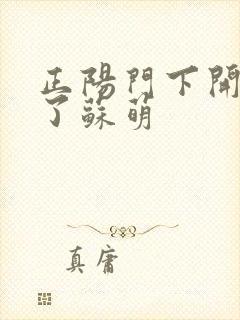 正陽門下開
了蘇萌
真庸